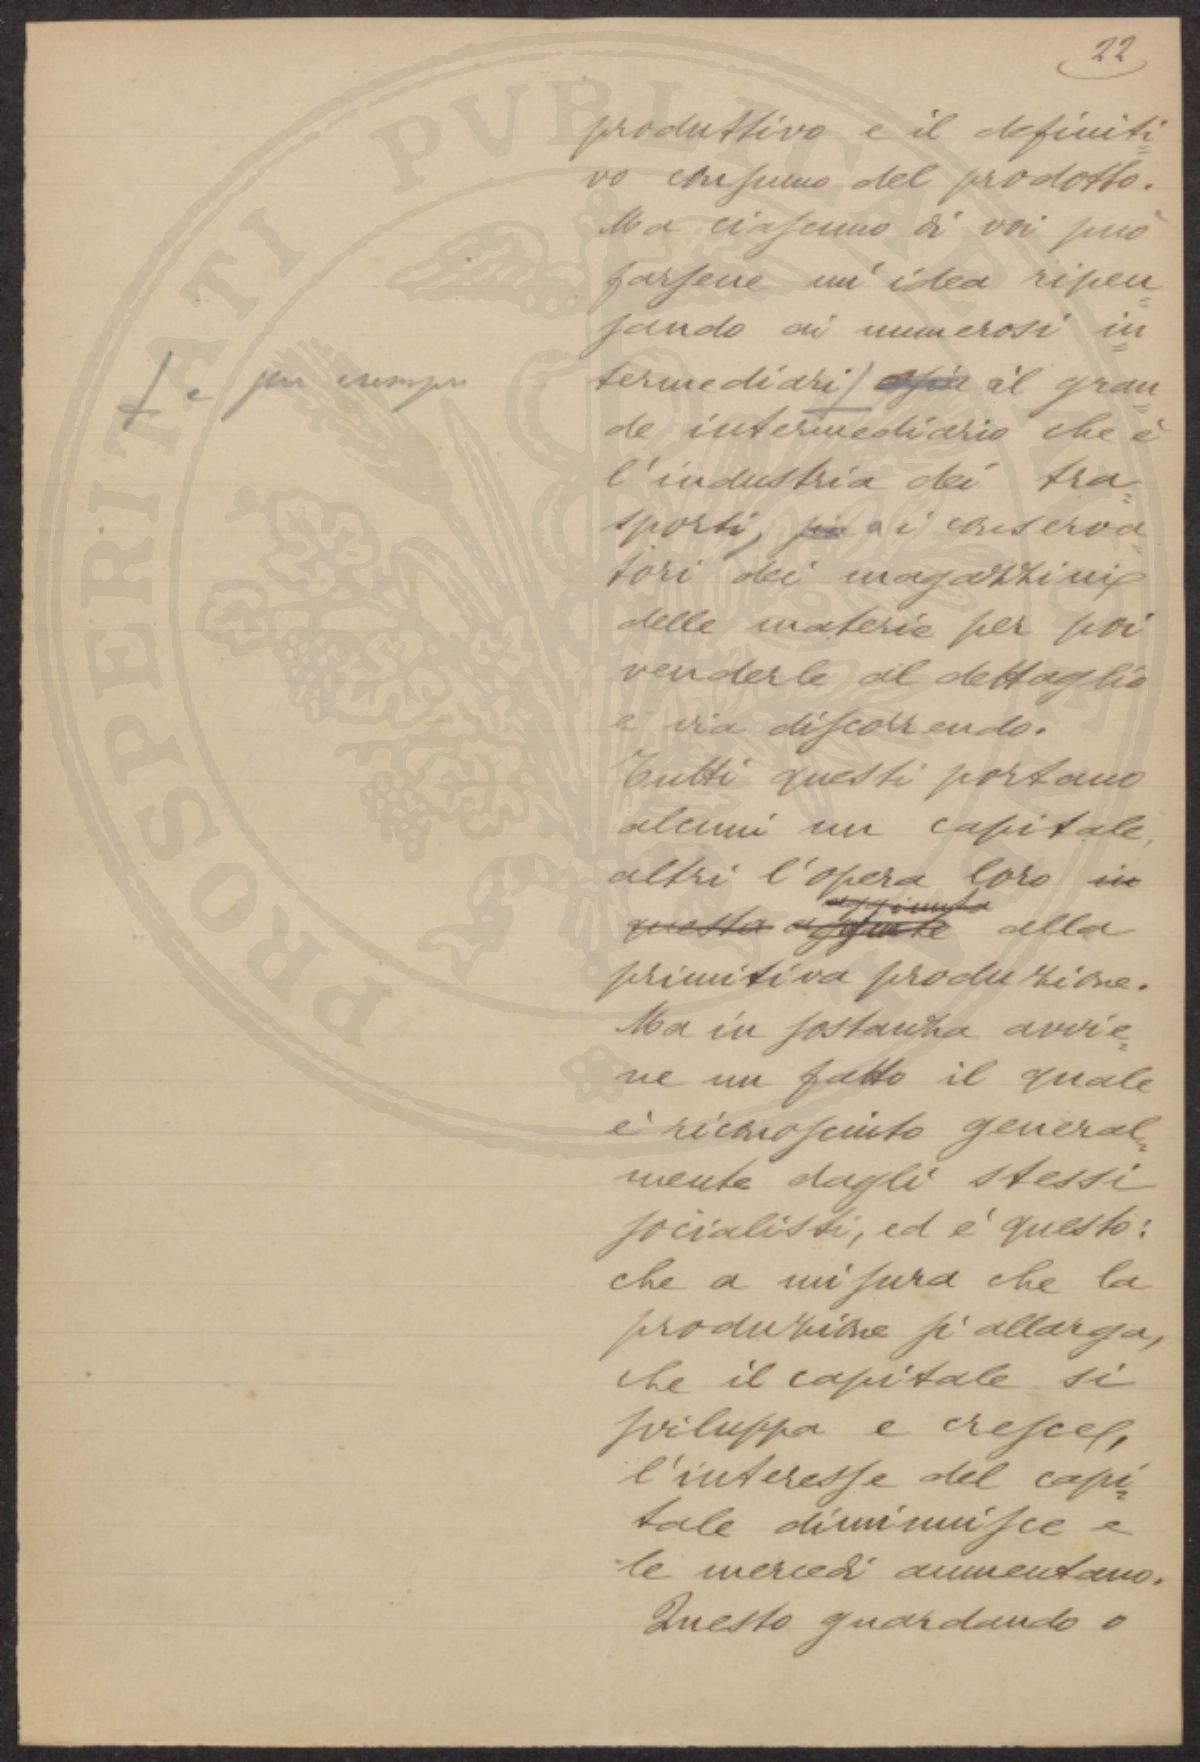 22
produttivo e il definiti=
vo consumo del prodotto.
Ma ciascuno di voi può
farsene un' idea ripen=
sando ai numerosi in=
e per esempio
termediari il gran=
de intermediario che è
l'industria dei tra=
sporti, ai conserva=
tori dei magazzini
delle materie per poi
venderle al dettaglio
e via discorrendo.
Tutti questi portano
alcuni un capitale,
altri l'opera loro in
aggiunta
questa alla
primitiva produzione.
Ma in sostanza avvie=
ne un fatto il quale
è riconosciuto general=
mente dagli stessi
socialisti, ed è questo:
che a misura che la
produzione si allarga,
che il capitale si
sviluppa e cresce,
l'interesse del capi=
tale diminuisce e
le mercedi aumentano.
Questo guardando o
PROSPERITATI PVBLICAE